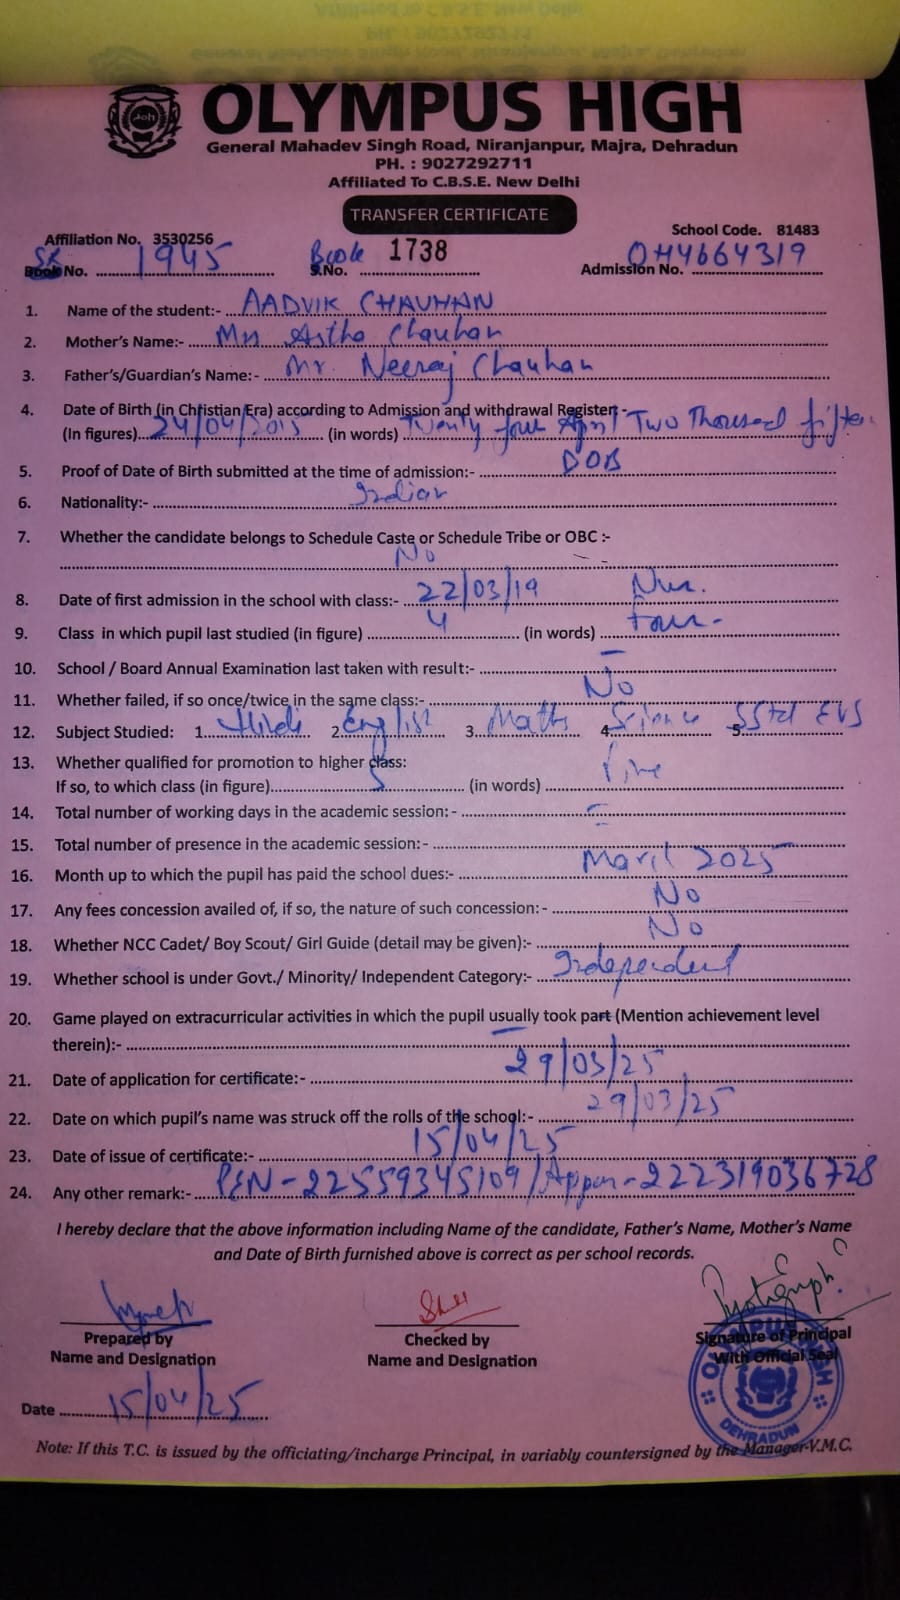 OLYMPUS HIGH
General Mahadev Singh Road, Niranjanpur, Majra, Dehradun
PH. : 9027292711
Affiliated To C.B.S.E. New Delhi
TRANSFER CERTIFICATE
Affiliation No. 3530256 School Code. 81483
SR No. 1945 Book S.No. 1738 Admission No. OH4664319
1. Name of the student:- AADVIK CHAUHAN
2. Mother's Name:- Mrs Astha Chauhan
3. Father's/Guardian's Name:- Mr. Neeraj Chauhan
4. Date of Birth (in Christian Era) according to Admission and withdrawal Register:-
(In figures) 24/04/2015 (in words) Twenty four April Two Thousand fifteen
5. Proof of Date of Birth submitted at the time of admission:- DOB
6. Nationality:- Indian
7. Whether the candidate belongs to Schedule Caste or Schedule Tribe or OBC :-
No
8. Date of first admission in the school with class:- 22/03/19 Nur.
9. Class in which pupil last studied (in figure) 4 (in words) Four-
10. School / Board Annual Examination last taken with result:- -
11. Whether failed, if so once/twice in the same class:- No
12. Subject Studied: 1. Hindi 2. English 3. Maths 4. Science 5. SStd EVS
13. Whether qualified for promotion to higher class:
If so, to which class (in figure) 5 (in words) Five
14. Total number of working days in the academic session:-
15. Total number of presence in the academic session:-
16. Month up to which the pupil has paid the school dues:- 2025
17. Any fees concession availed of, if so, the nature of such concession:- No
18. Whether NCC Cadet/ Boy Scout/ Girl Guide (detail may be given):- No
19. Whether school is under Govt./ Minority/ Independent Category:- Independent
20. Game played on extracurricular activities in which the pupil usually took part (Mention achievement level
therein):- -
21. Date of application for certificate:- 29/03/25
22. Date on which pupil's name was struck off the rolls of the school:- 29/03/25
23. Date of issue of certificate:- 15/04/25
24. Any other remark:- PEN-22559345109/Appar-222319036728
I hereby declare that the above information including Name of the candidate, Father's Name, Mother's Name
and Date of Birth furnished above is correct as per school records.
Prepared by Checked by Signature of Principal
Name and Designation Name and Designation With Official Seal
OLYMPUS HIGH
DEHRADUN
Date 15/04/25
Note: If this T.C. is issued by the officiating/incharge Principal, in variably countersigned by the Manager-V.M.C.